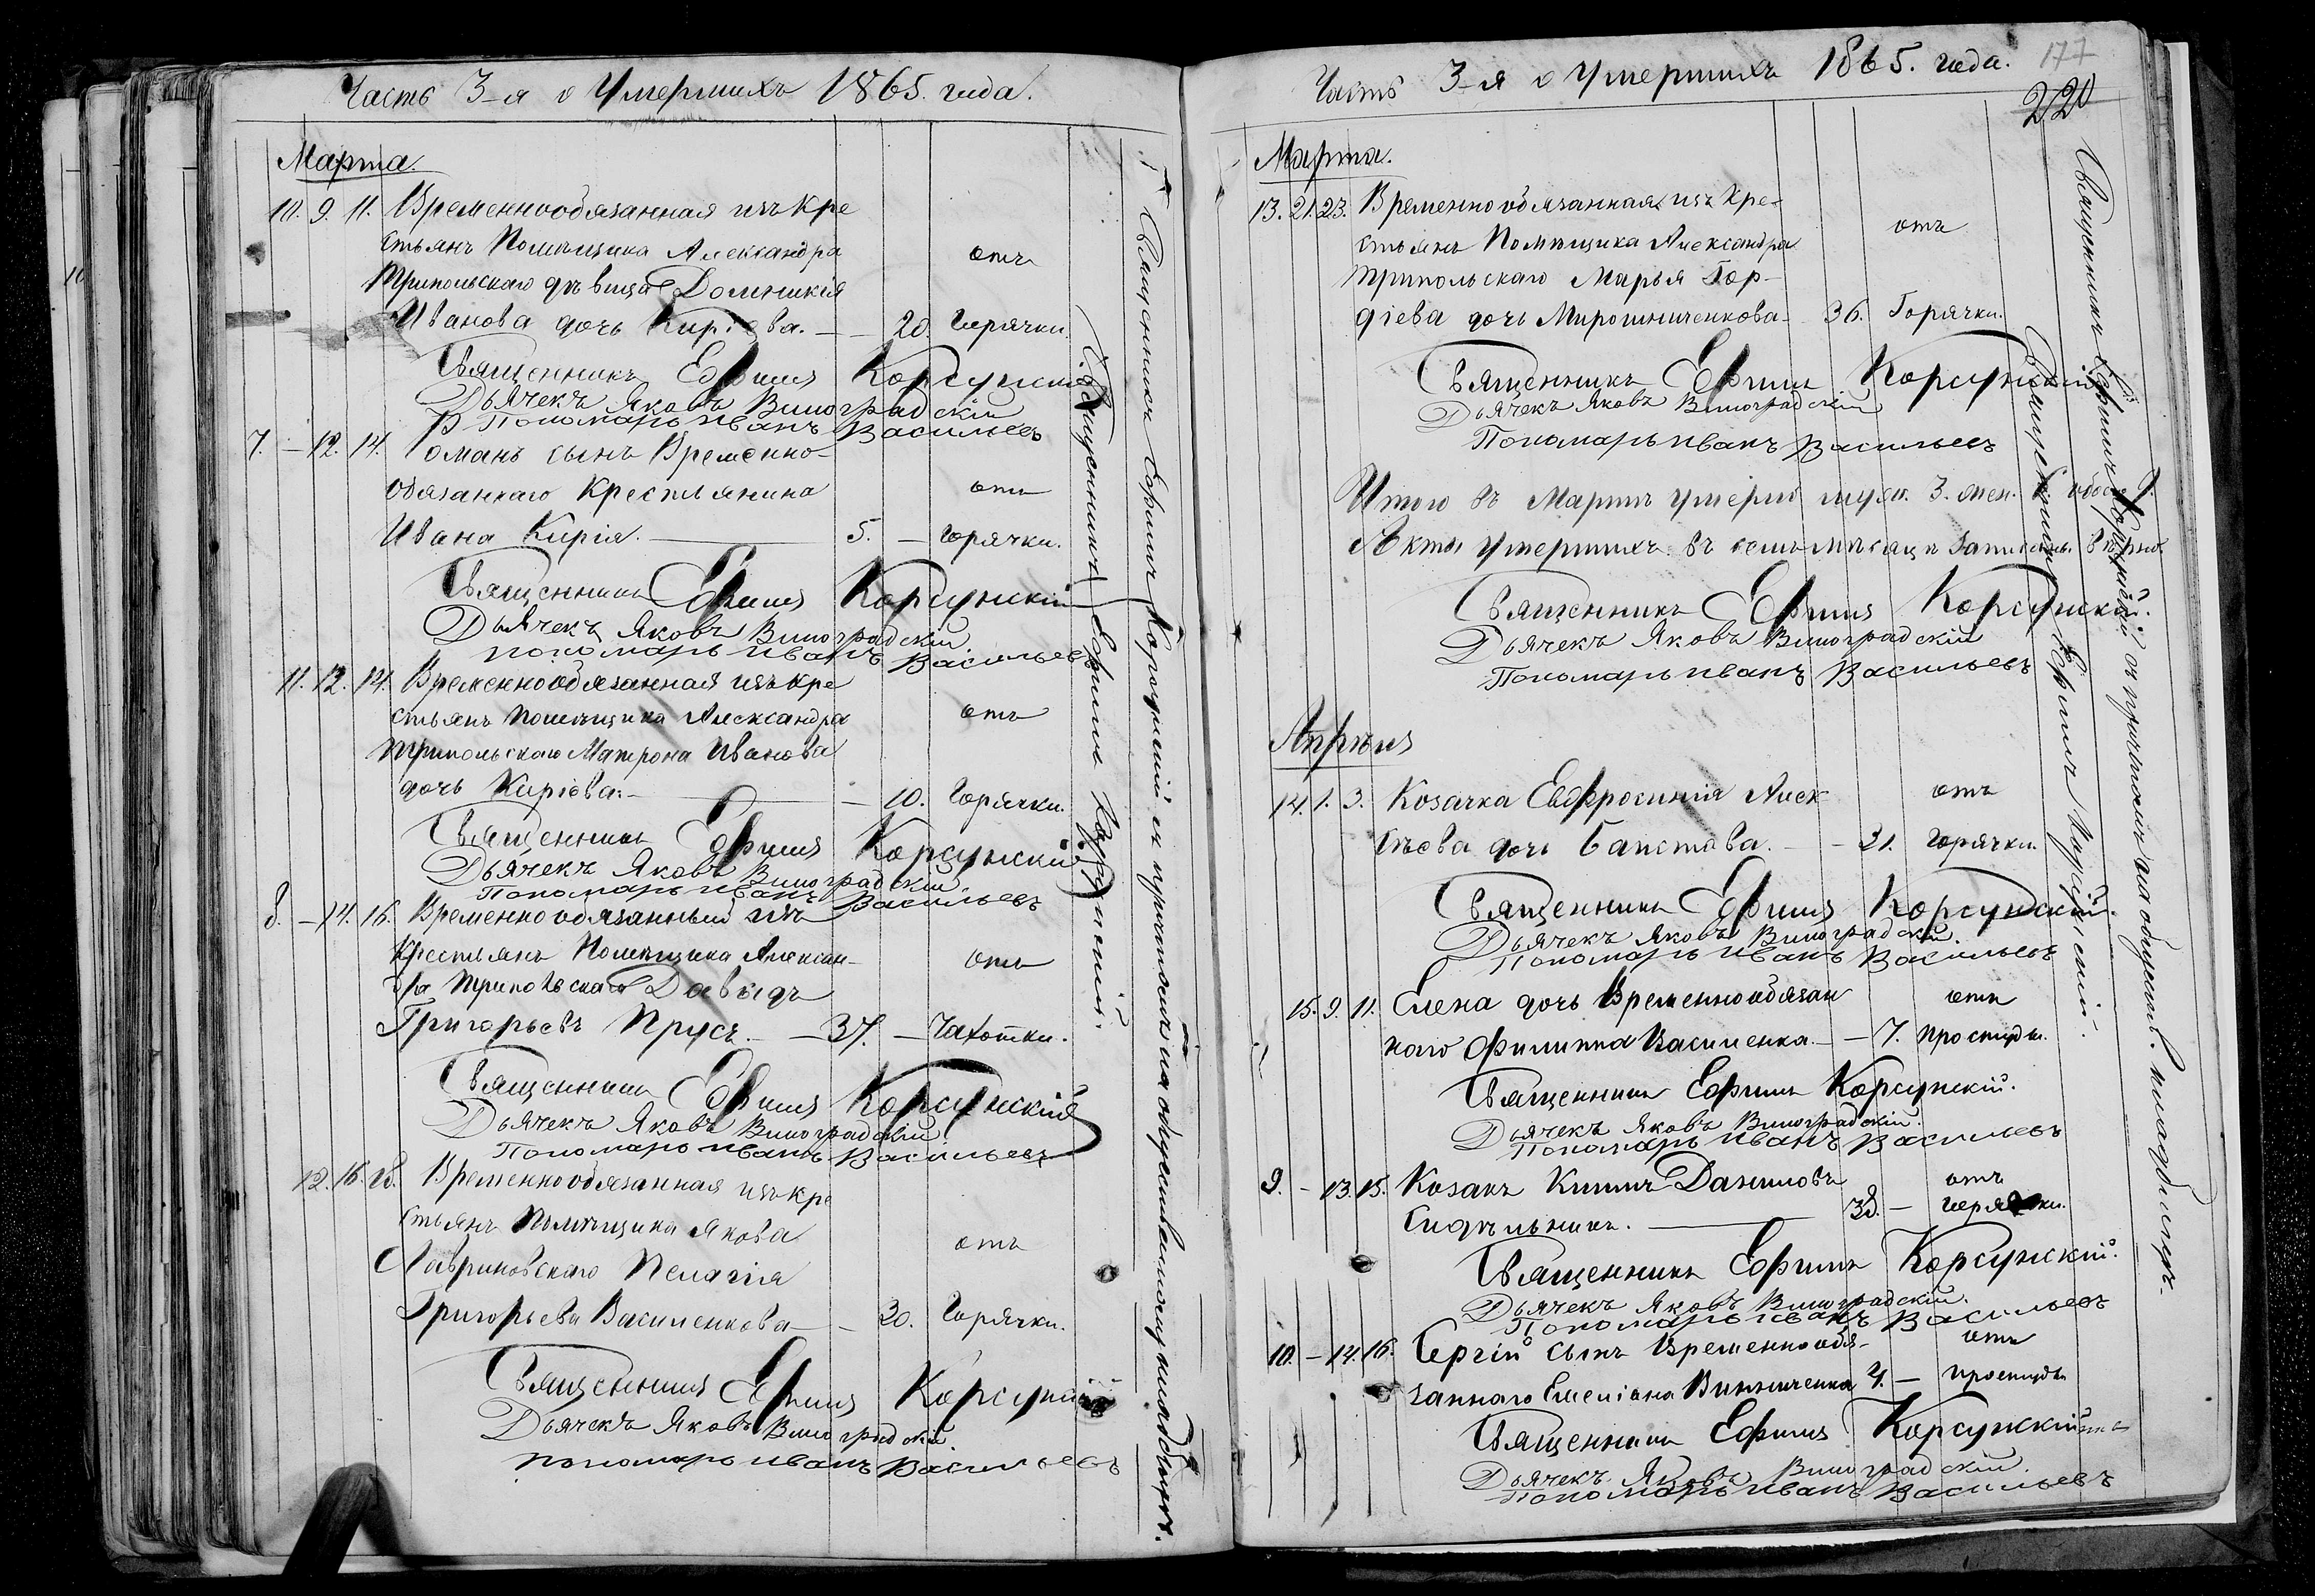 Часть 3-я о Умершихъ 1865. года.
Марта.
10. 9. 11. Временнообязанная изъ кре
стьянъ Помѣщика Александра отъ
Трипольскаго дѣвица Домникія
Иванова дочь Киріева. — 20. Горячки.
Священникъ Ефимъ Корсунскій
Дьячекъ Яковъ Виноградскій
Пономарь Иванъ Васильевъ
7. — 12. 14. Романъ сынъ Временно-
обязаннаго Крестьянина отъ
Ивана Кирія. — 5. — горячки.
Священникъ Ефимъ Корсунскій
Дьячекъ Яковъ Виноградскій
пономарь Иванъ Васильевъ
11. 12. 14. Временнообязанная изъ кре
стьянъ помѣщика Александра отъ
Трипольскаго Матрона Иванова
дочь Киріева. — 10. Горячки.
Священникъ Ефимъ Корсунскій
Дьячекъ Яковъ Виноградскій
Пономарь Иванъ Васильевъ
8. — 14. 16. Временнообязанный изъ
Крестьянъ Помѣщика Алексан- отъ
дра Трипольскаго Давыдъ
Григорьевъ Прусъ. — 37. — Чахотки.
Священникъ Ефимъ Корсунскій
Дьячекъ Яковъ Виноградскій
Пономарь Иванъ Васильевъ
12. 16. 18. Временнообязанная изъ кре
стьянъ Помѣщика Якова отъ
Лавриновскаго Пелагія
Григорьева Василенкова — 30. Горячки.
Священникъ Ефимъ Корсунскій
Дьячекъ Яковъ Виноградскій
пономарь Иванъ Васильевъ
Священникъ Ефимъ Корсунскій.
Священникъ Ефимъ Корсунскій съ причтомъ
Часть 3-я о Умершихъ 1865. года. 177
220
Марта.
13. 21. 23. Временнообязанная изъ Кре-
стьянъ Помѣщика Александра отъ
Трипольскаго Марья Гор-
діева дочь Мирошниченкова — 36. Горячки.
Священникъ Ефимъ Корсунскій
Дьячекъ Яковъ Виноградскій
Пономарь Иванъ Васильевъ
Итого въ Мартѣ умерло муж. 3. жен.
Акты умершихъ въ семъ мѣсяцѣ записаны вѣрно.
Священникъ Ефимъ Корсунскій.
Дьячекъ Яковъ Виноградскій
Пономарь Иванъ Васильевъ
Апрѣля
14. 1. 3. Козачка Евфросинія Алек отъ
сѣева дочь Бапстова. — 21. горячки.
Священникъ Ефимъ Корсунскій.
Дьячекъ Яковъ Виноградскій.
Пономарь Иванъ Васильевъ
15. 9. 11. Елена дочь Временнообязан отъ
наго Филиппа Василенка. — 7. простуды.
Священникъ Ефимъ Корсунскій.
Дьячекъ Яковъ Виноградскій.
Пономарь Иванъ Васильевъ
9. — 13. 15. Козакъ Даниловъ отъ
Сидѣльникъ. — 38. — горячки.
Священникъ Ефимъ Корсунскій.
Дьячекъ Яковъ Виноградскій.
Пономарь Иванъ Васильевъ
10. — 14. 16. Сергій сынъ Временнообя- отъ
заннаго Емеліана Винниченка 4. — простуды
Священникъ Ефимъ Корсунскій
Дьячекъ Яковъ Виноградскій.
Пономарь Иванъ Васильевъ
Священникъ Ефимъ Корсунскій.
Священникъ Ефимъ Корсунскій съ причтомъ